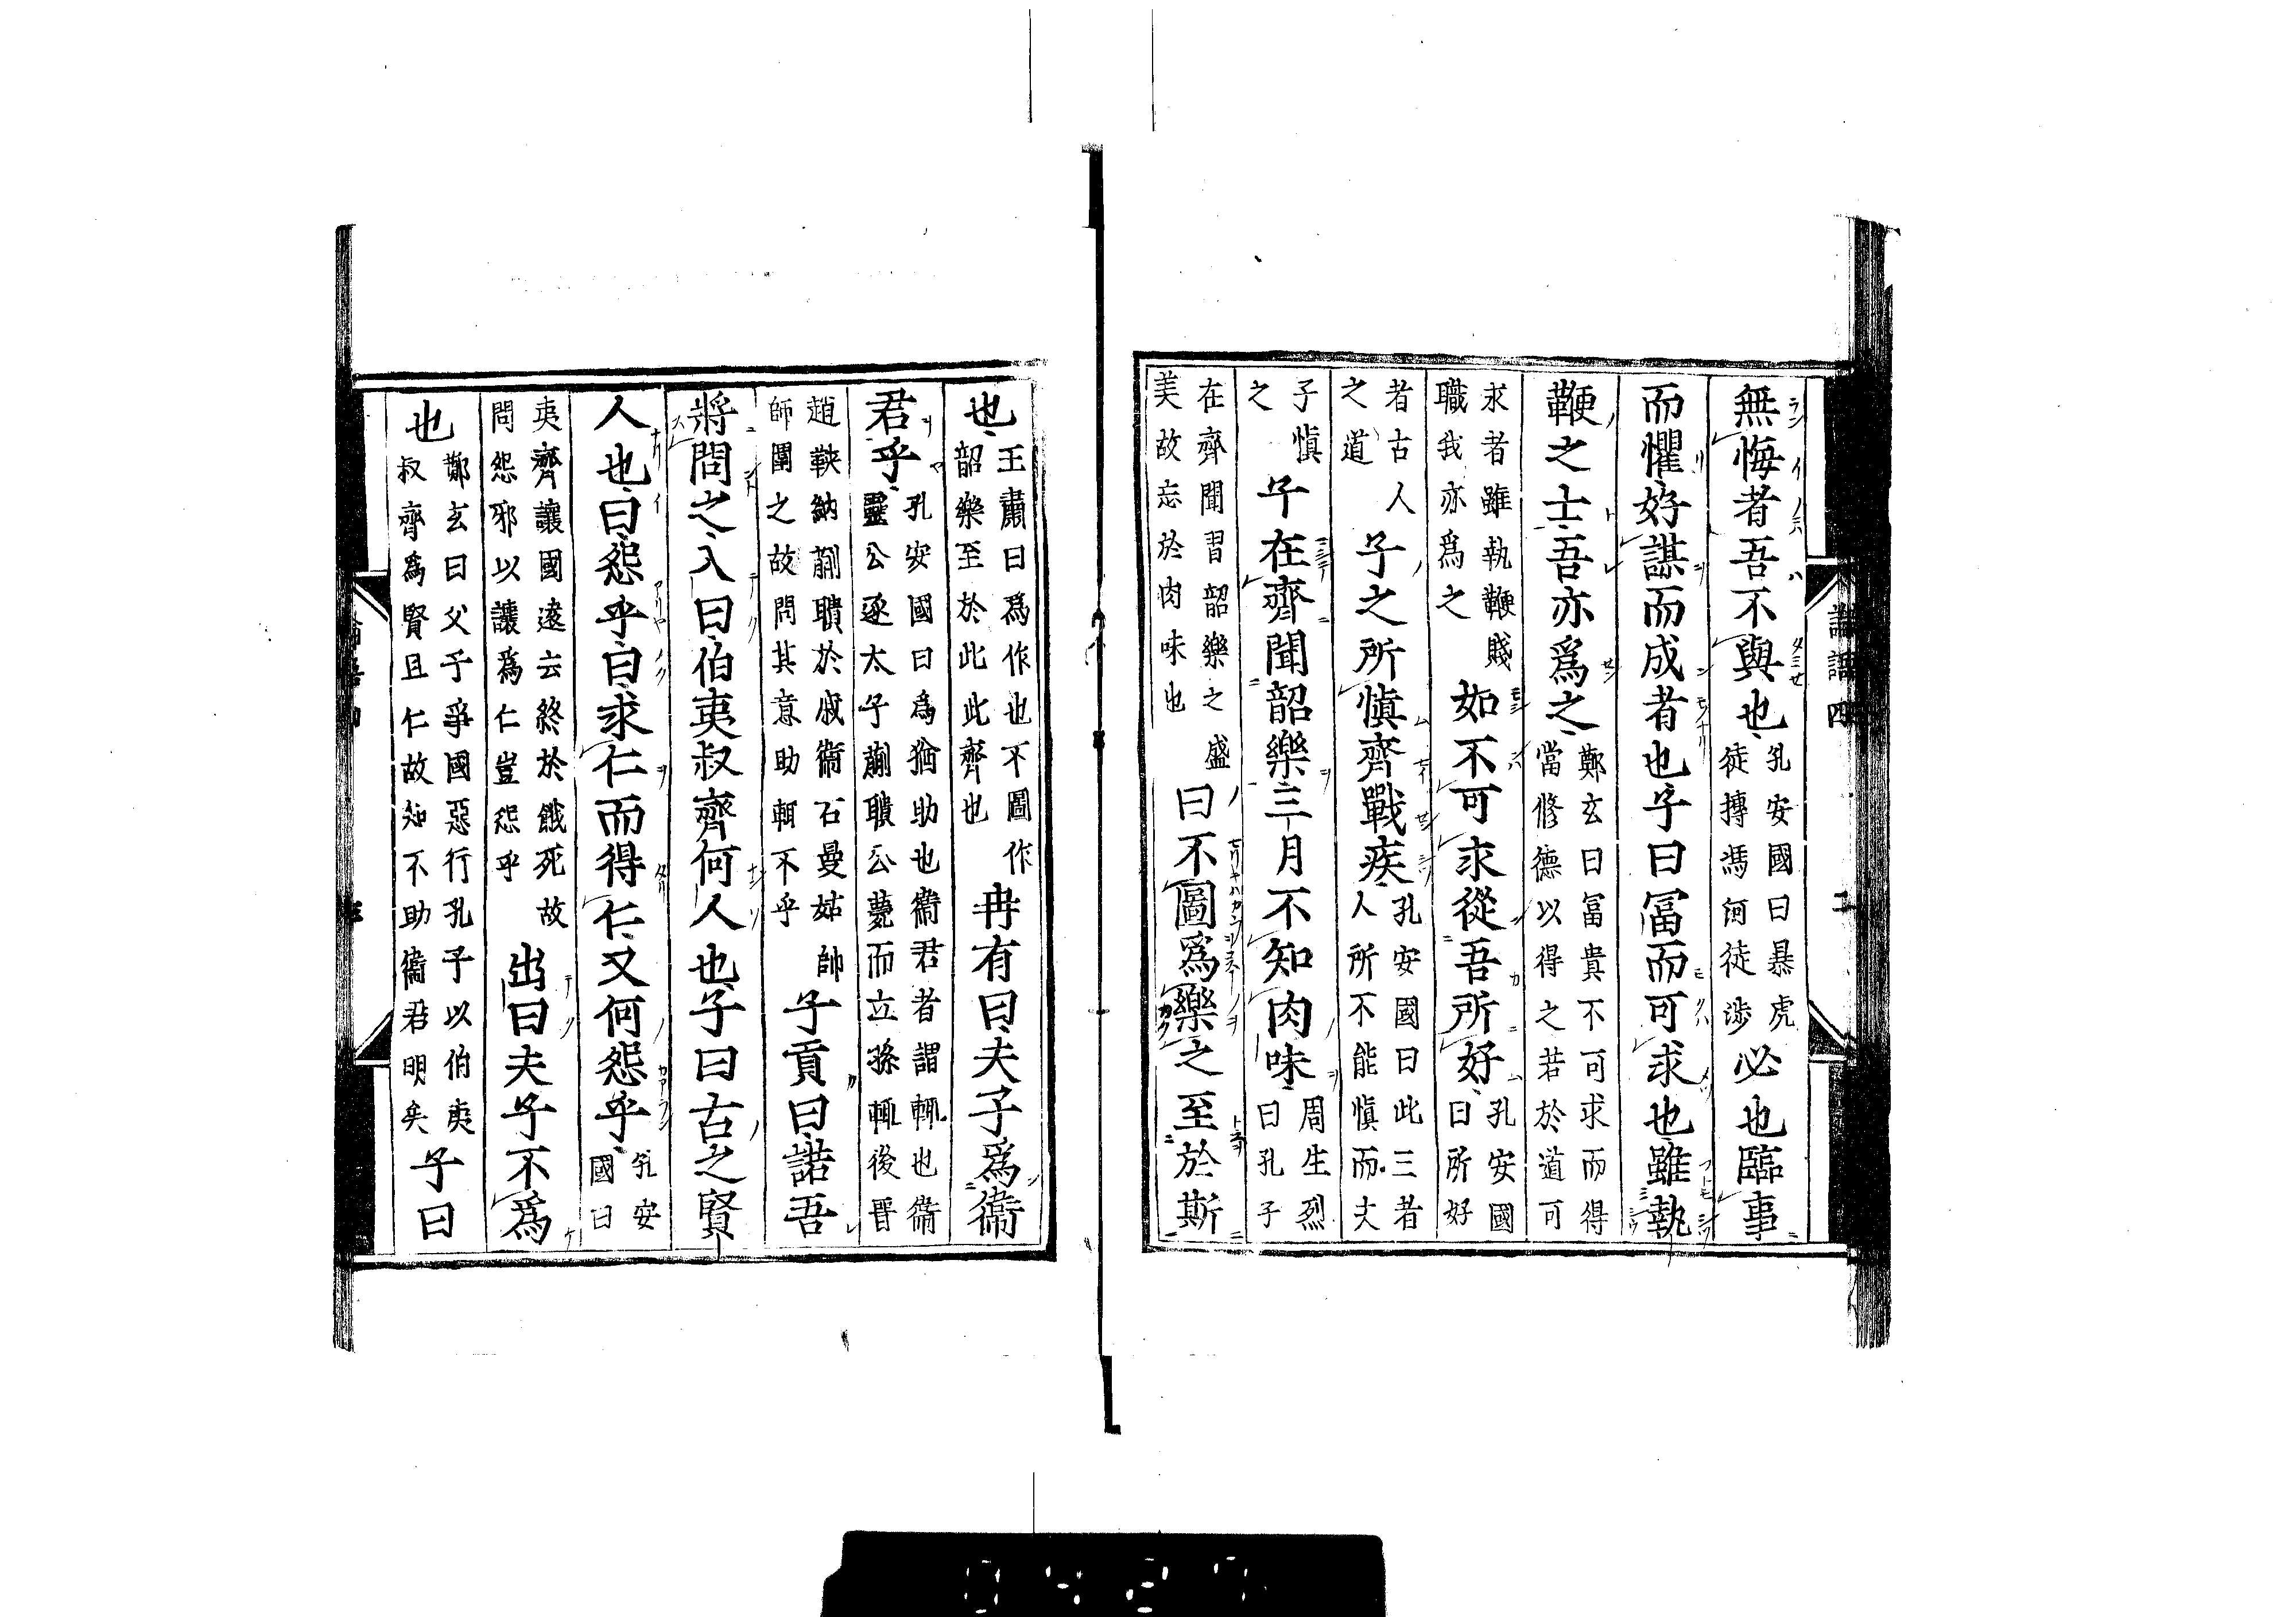 論語四 二
無悔者吾不與也孔安國曰暴虎徒搏馮河徒涉必也臨事
而懼好謀而成者也子曰冨而可求也雖執
鞭之士吾亦爲之鄭玄曰冨貴不可求而得當修德以得之若於道可
求者雖執鞭賤職我亦爲之如不可求從吾所好孔安國曰所好
者古人之道子之所慎齊戰疾孔安國曰此三者人所不能慎而夫
子慎之子在齊聞韶樂三月不知肉味周生烈曰孔子
在齊聞習韶樂之盛美故忘於肉味也曰不圖爲樂之至於斯
也王肅曰爲作也不圖作韶樂至於此此齊也冉有曰夫子爲衞
君乎孔安國曰爲猶助也衞君者謂輒也衞靈公逐太子蒯聵公薨而立孫輒後晋
趙鞅納蒯聵於戚衞石曼姑帥師圍之故問其意助輒不乎子貢曰諾吾
將問之入曰伯夷叔齊何人也子曰古之賢
人也曰怨乎曰求仁而得仁又何怨乎孔安國曰
夷齊讓國遠去終於餓死故問怨邪以讓爲仁豈怨乎出曰夫子不爲
也鄭玄曰父子爭國惡行孔子以伯夷叔齊爲賢且仁故知不助衞君明矣子曰